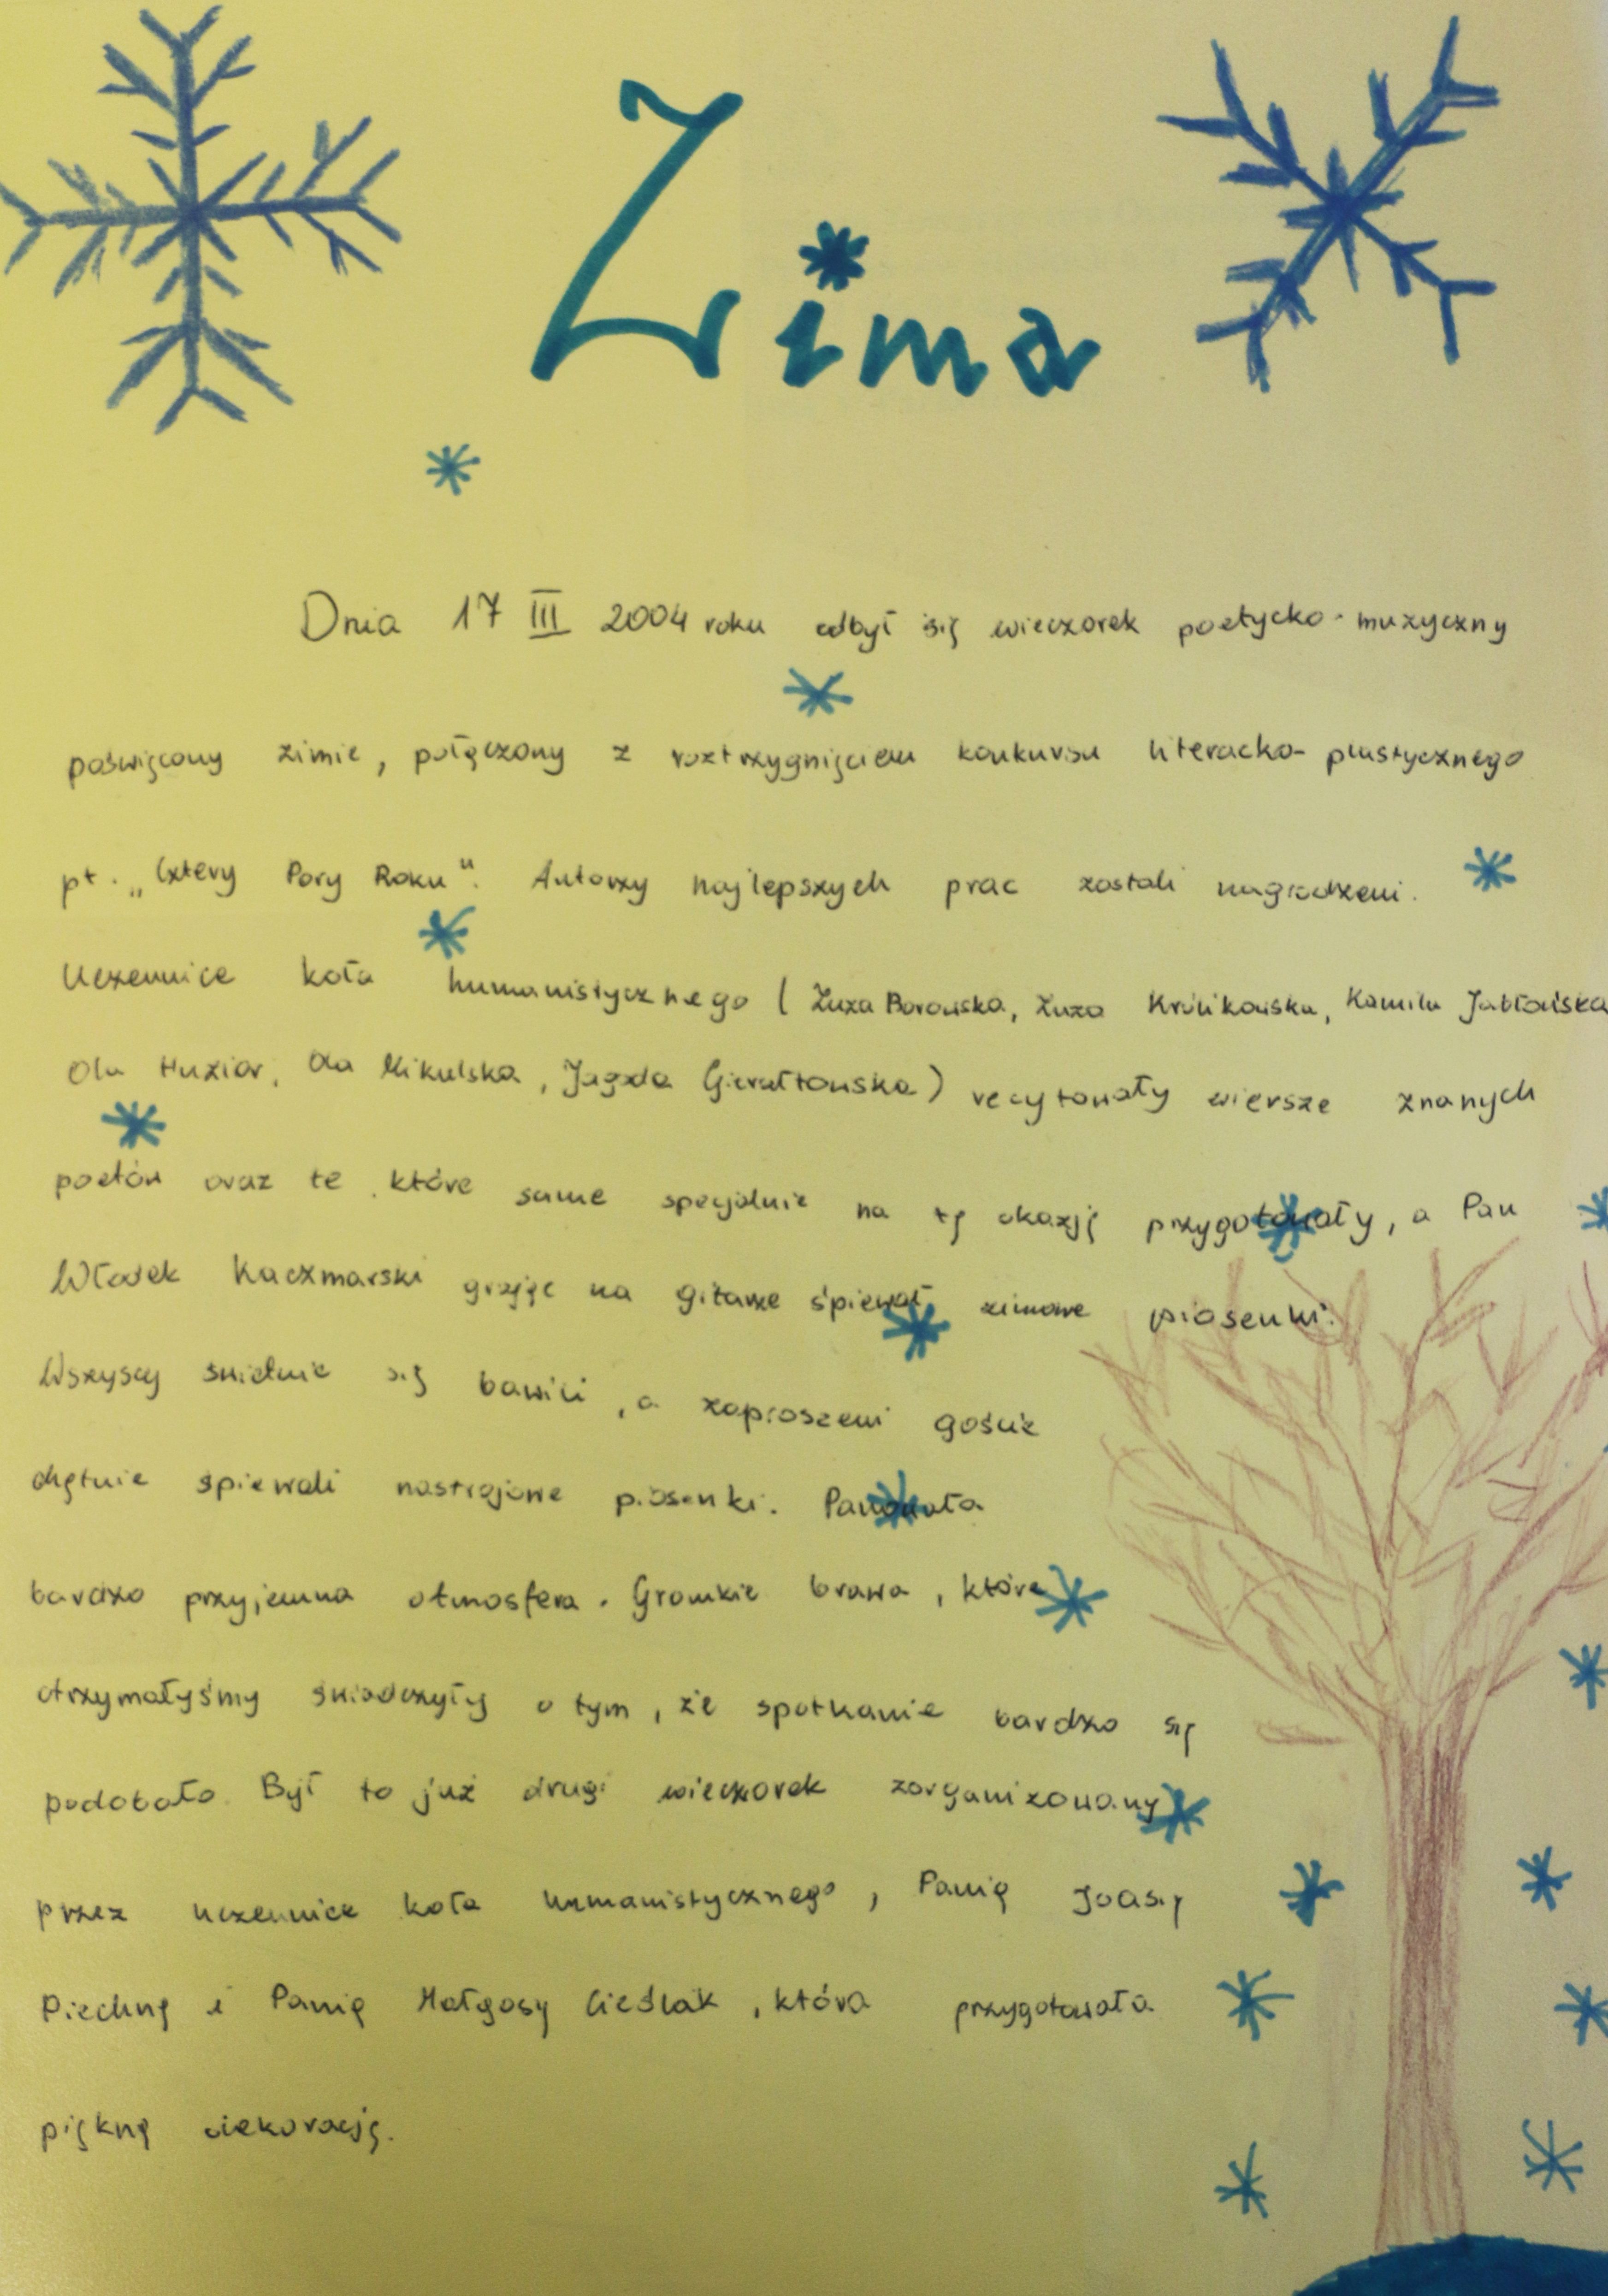 Zima
Dnia 17 III 2004 roku odbył się wieczorek poetycko-muzyczny
poświęcony zimie, połączony z roztrzygnięciem konkursu literacko-plastycznego
pt. „Cztery Pory Roku". Autorzy najlepszych prac zostali nagrodzeni.
Uczennice koła humanistycznego (Zuza Borowska, Zuza Królikowska, Kamila Jabłońska
Ola Huziar, Ola Mikulska, Jagoda Gierałtowska) recytowały wiersze znanych
poetów oraz te które same specjalnie na tę okazję przygotowały, a Pan
Włodek Kaczmarski grając na gitarze śpiewał zimowe piosenki.
Wszyscy świetnie się bawili, a zaproszeni goście
chętnie śpiewali nastrojowe piosenki. Panowała
bardzo przyjemna atmosfera. Gromkie brawa, które
otrzymałyśmy świadczyły o tym, że spotkanie bardzo się
podobało. Był to już drugi wieczorek zorganizowany
przez uczennice koła humanistycznego, Panią Joasię
Piechnę i Panią Małgosię Cieślak, która przygotowała
piękną dekorację.